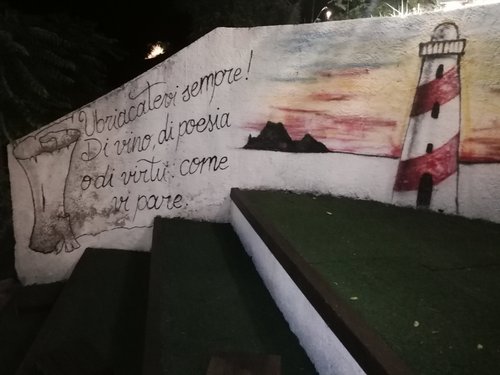 Ubriacatevi sempre!
Di vino, di poesia
o di virtù: come
vi pare.